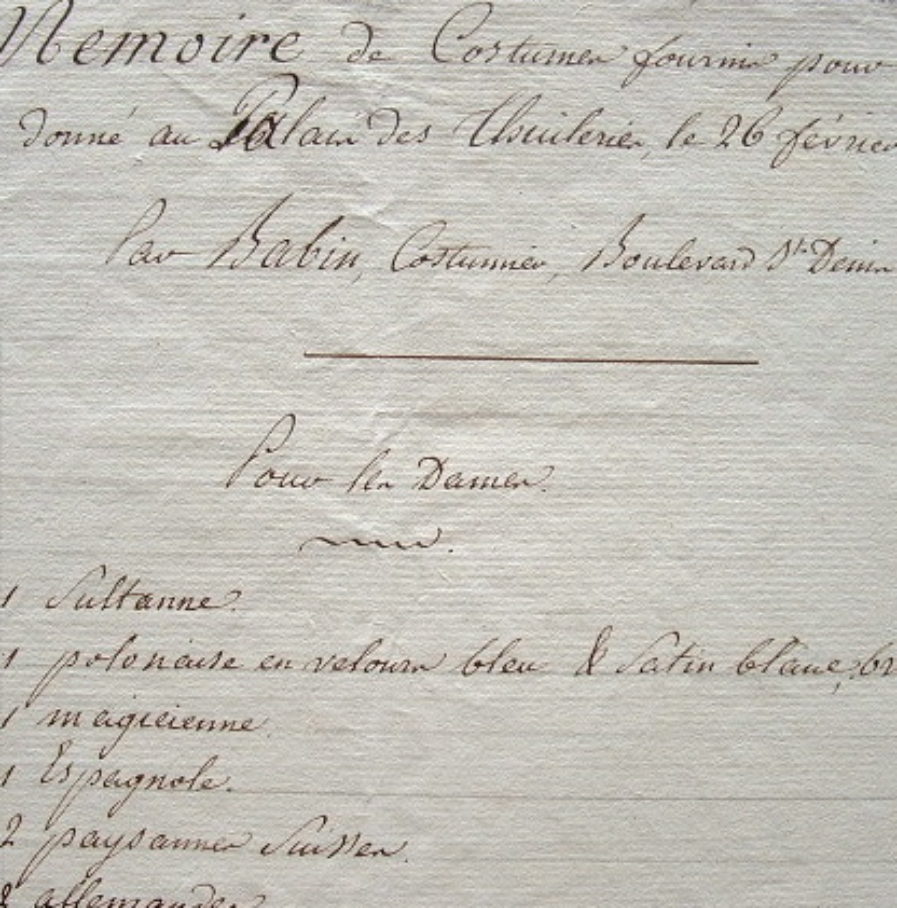 Memoire de Costumes fournis pour
donné au Palais des Thuileries, le 26 février
Par Babin, Costumier, Boulevard St. Denis
Pour les Dames.
1 Sultanne.
1 polonaise en velours bleu & Satin blanc, br
1 magicienne.
1 Espagnole.
2 paysannes Suisses.
allemandes